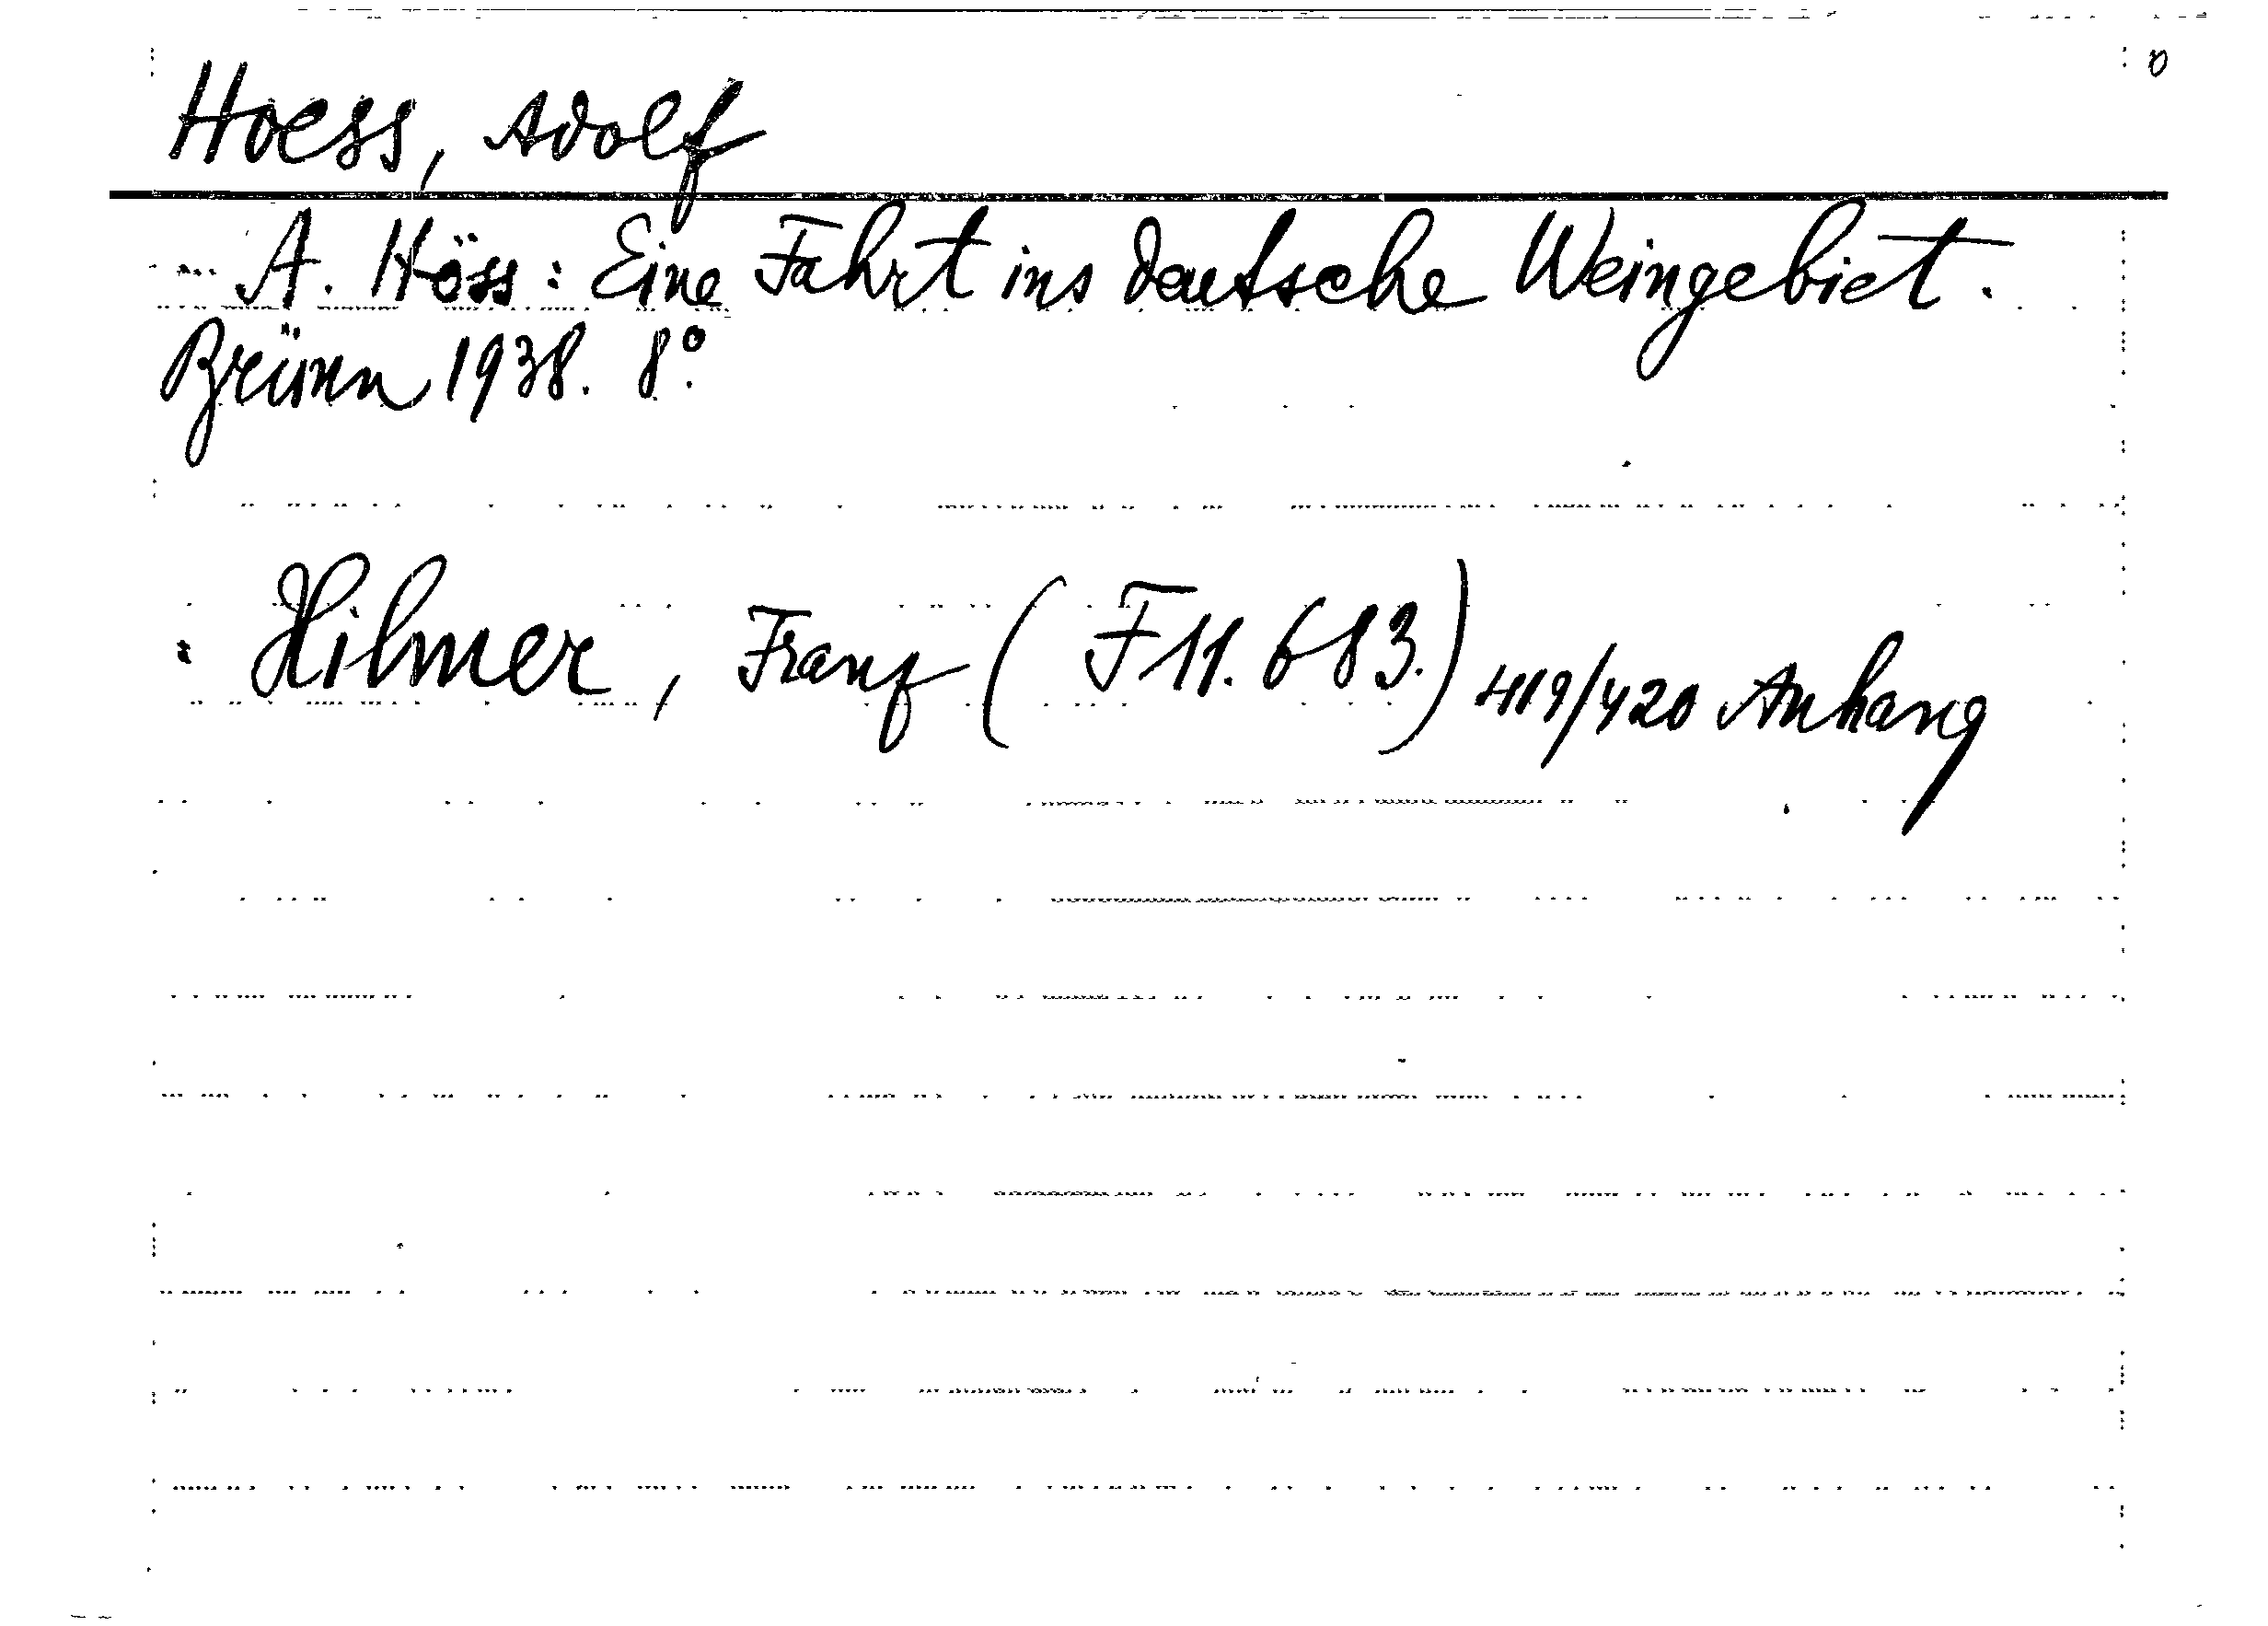 Hoess, Adolf
A. Höss: Eine Fahrt ins deutsche Weingebiet.
Brünn 1938. 8°.
: Hilmer, Franz (F 11. 683.) 419/420 Anhang